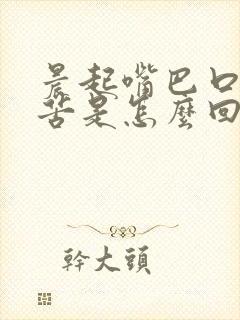 晨起嘴巴口
苦是怎麼回
幹大頭